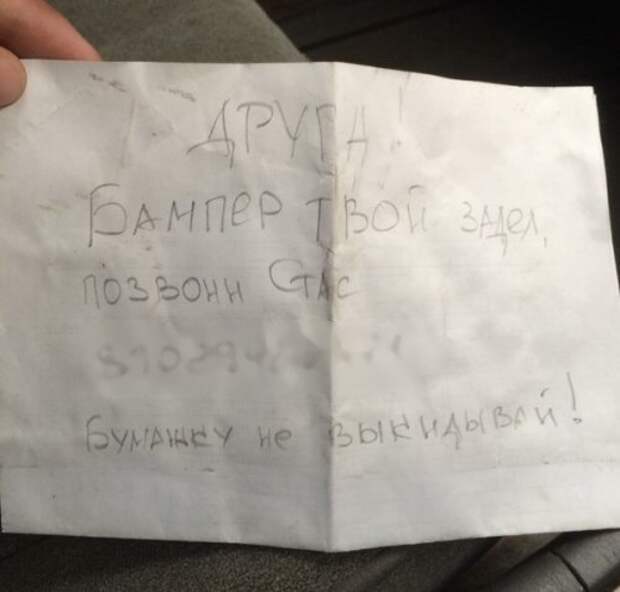 ДРУГА!
БАМПЕР ТВОЙ ЗАДЕЛ,
ПОЗВОНИ СТАС
БУМАЖКУ НЕ ВЫКИДЫВАЙ!